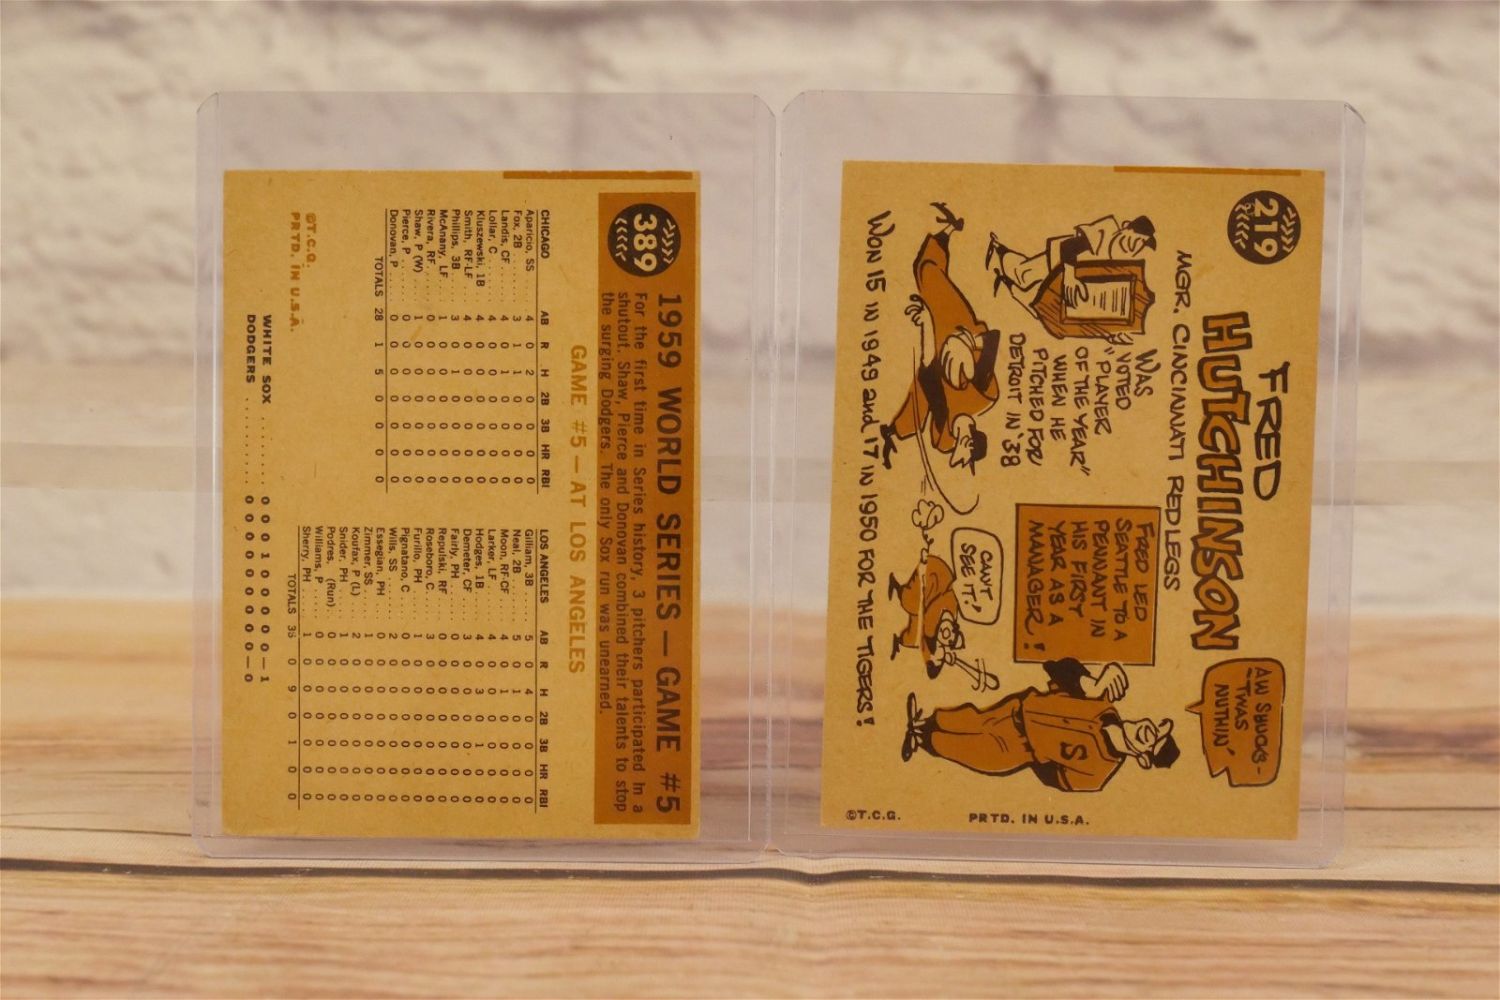 389
1959 WORLD SERIES — GAME #5
For the first time in Series history, 3 pitchers participated in a
shutout. Shaw, Pierce and Donovan combined their talents to stop
the surging Dodgers. The only Sox run was unearned.
GAME #5 — AT LOS ANGELES
CHICAGO AB R H 2B 3B HR RBI
Aparicio, SS 4 0 2 0 0 0 0
Fox, 2B 3 1 1 0 0 0 0
Landis, CF 4 0 1 0 0 0 0
Lollar, C 4 0 0 0 0 0 0
Kluszewski, 1B 4 0 0 0 0 0 0
Smith, RF-LF 4 0 0 0 0 0 0
Phillips, 3B 3 0 1 0 0 0 0
McAnany, LF 1 0 0 0 0 0 0
Rivera, RF 0 0 0 0 0 0 0
Shaw, P (W) 1 0 0 0 0 0 0
Pierce, P 0 0 0 0 0 0 0
Donovan, P 0 0 0 0 0 0 0
TOTALS 28 1 5 0 0 0 0
LOS ANGELES AB R H 2B 3B HR RBI
Gilliam, 3B 5 0 4 0 0 0 0
Neal, 2B 5 0 1 0 0 0 0
Moon, RF-CF 4 0 1 0 0 0 0
Larker, LF 4 0 0 0 0 0 0
Hodges, 1B 4 0 3 0 1 0 0
Demeter, CF 3 0 0 0 0 0 0
Fairly, PH 0 0 0 0 0 0 0
Repulski, RF 0 0 0 0 0 0 0
Roseboro, C 3 0 0 0 0 0 0
Furillo, PH 1 0 0 0 0 0 0
Pignatano, C 0 0 0 0 0 0 0
Wills, SS 2 0 0 0 0 0 0
Essegian, PH 0 0 0 0 0 0 0
Zimmer, SS 1 0 0 0 0 0 0
Koufax, P (L) 2 0 0 0 0 0 0
Snider, PH 1 0 0 0 0 0 0
Podres, (Run) 0 0 0 0 0 0 0
Williams, P 0 0 0 0 0 0 0
Sherry, PH 1 0 0 0 0 0 0
TOTALS 36 0 9 0 1 0 0
WHITE SOX 0 0 0 1 0 0 0 0 0 — 1
DODGERS 0 0 0 0 0 0 0 0 0 — 0
©T.C.G.
PRTD. IN U.S.A.
219
FRED
HUTCHINSON
MGR. CINCINNATI REDLEGS
AW SHUCKS-
'TWAS
NUTHIN'
WAS
VOTED
"PLAYER
OF THE YEAR"
WHEN HE
PITCHED FOR
DETROIT IN '38
FRED LED
SEATTLE TO A
PENNANT IN
HIS FIRST
YEAR AS A
MANAGER!
S
CAN'T
SEE IT!
WON 15 IN 1949 and 17 IN 1950 FOR THE TIGERS!
©T.C.G.
PRTD. IN U.S.A.